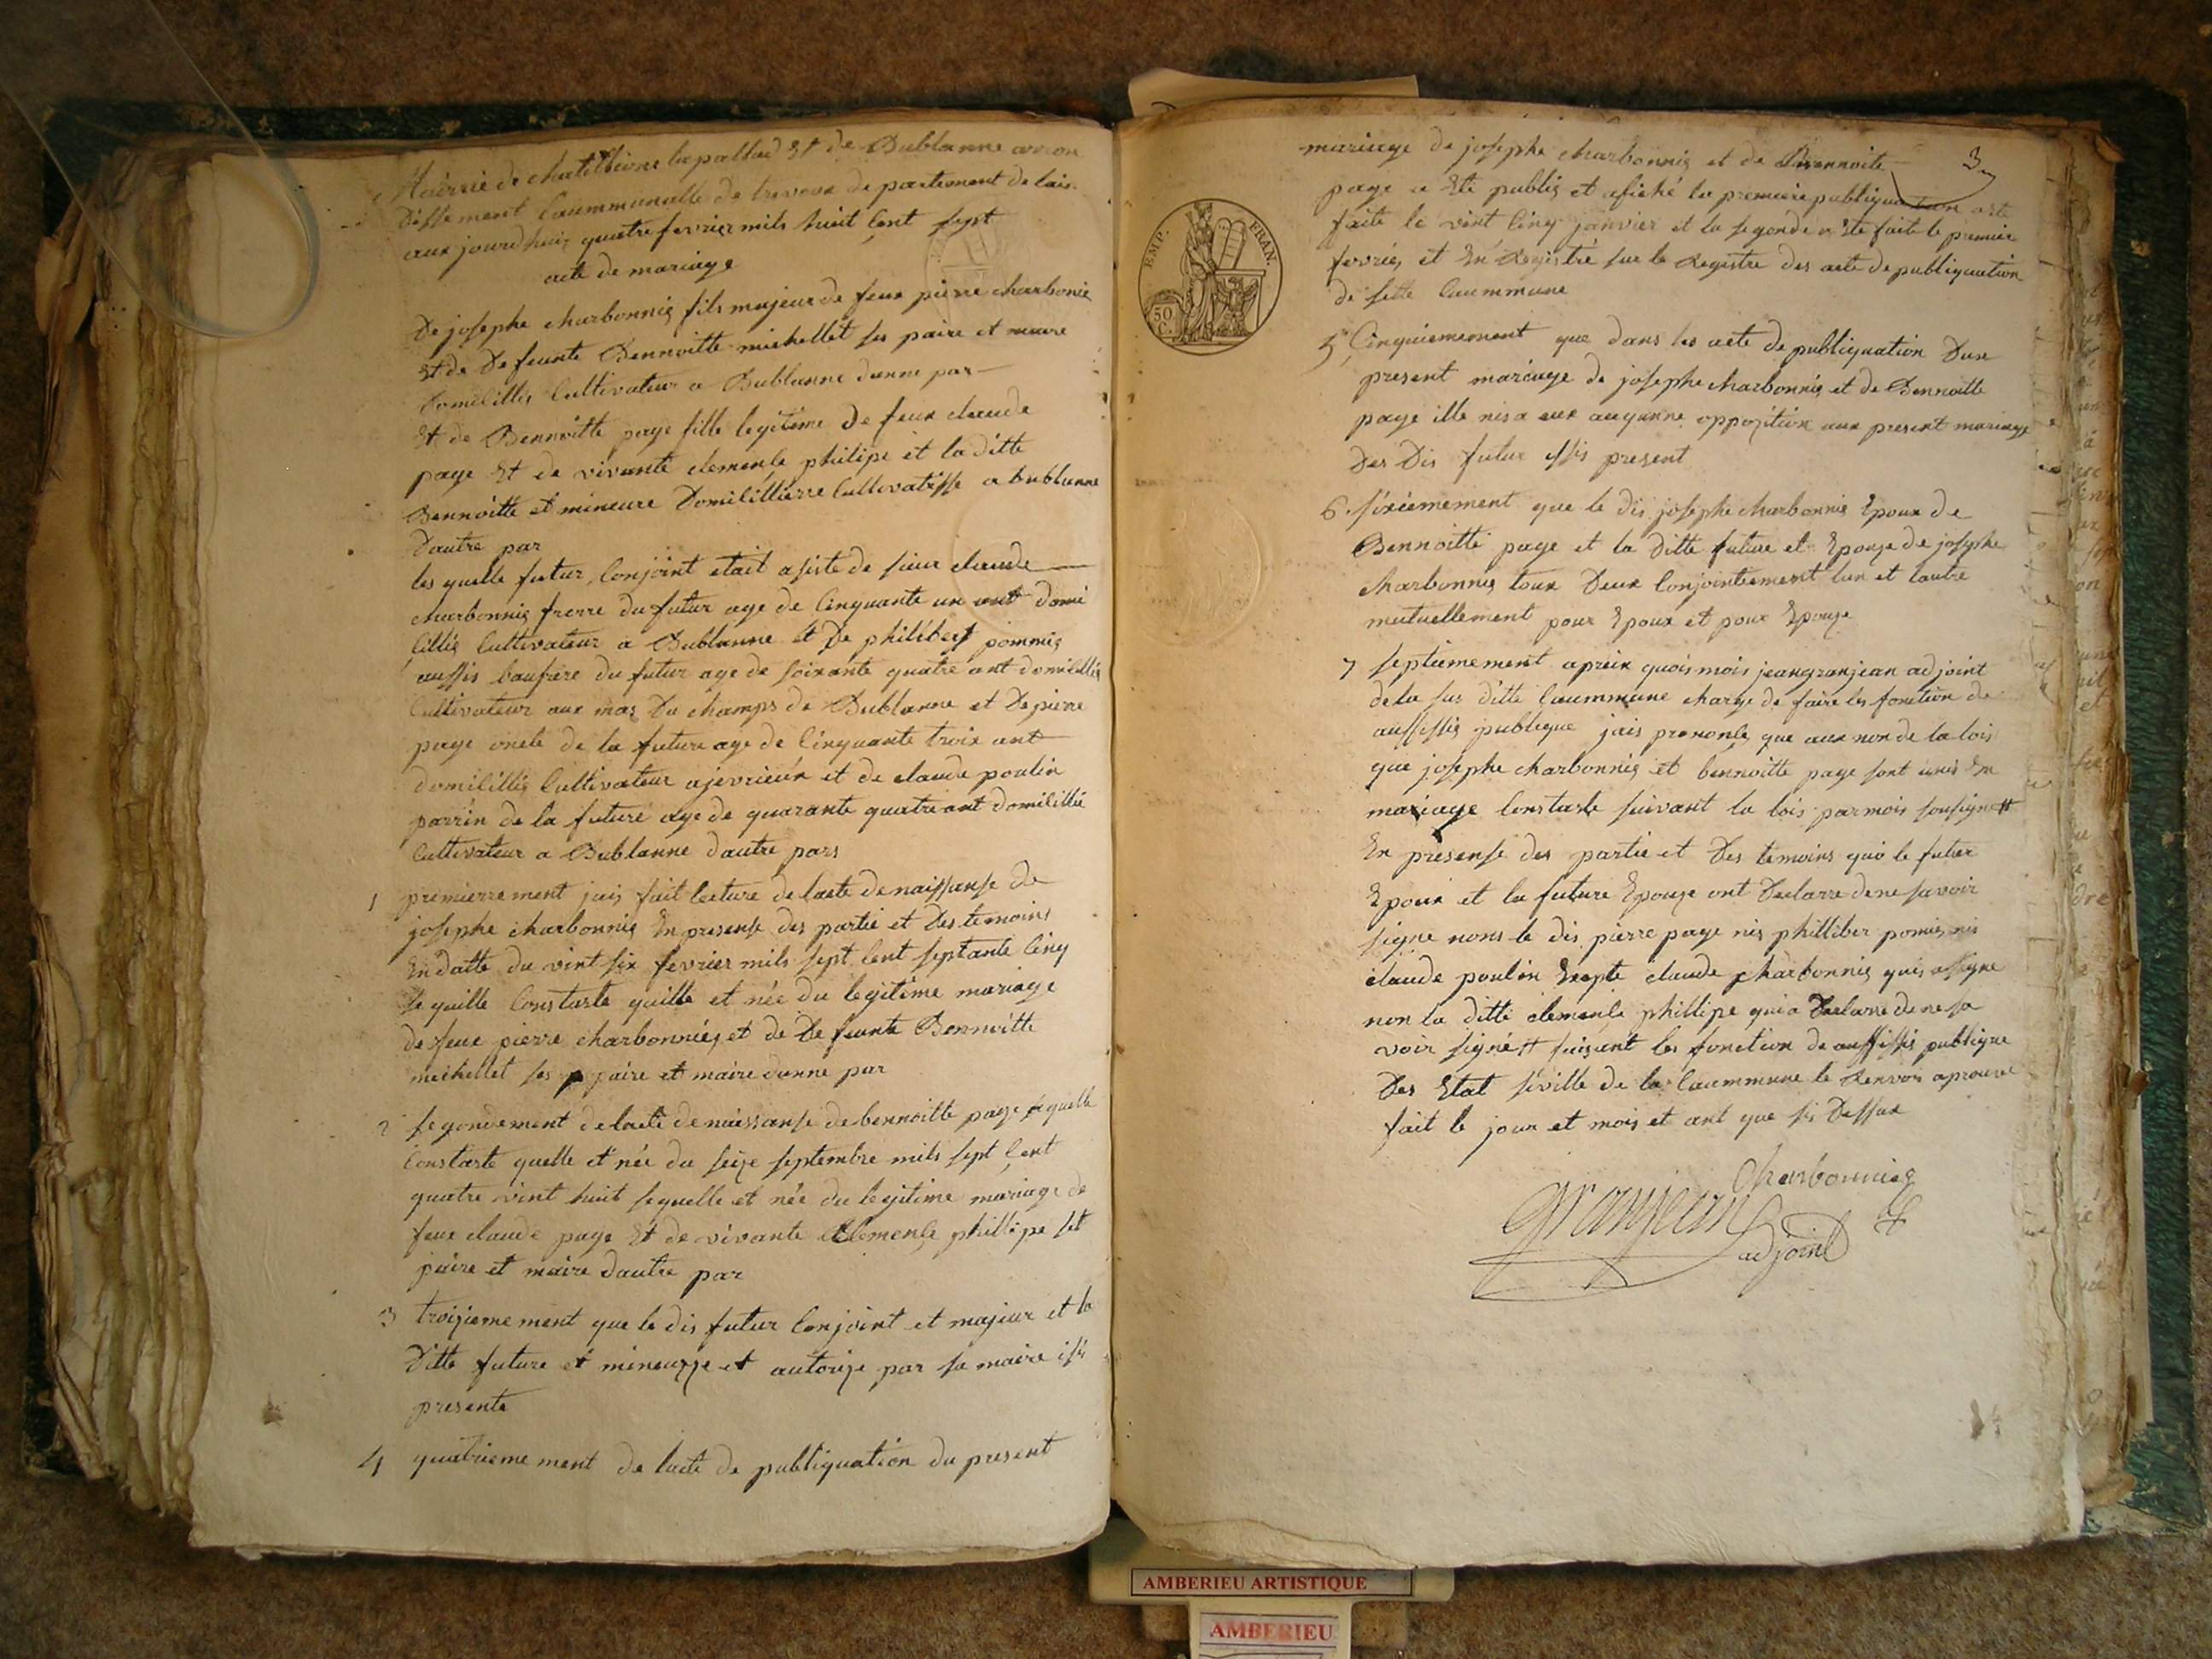 Mairrie de chatillione lapallud Et de Bublanne arron
dissement Caummunalle de trevoux departement de lain
aux jourdhuis quatre fevrier mils huit Cent sept
acte de mariage
De josephe charbonnié fils majeur de feux pierre charbonié
Et de Defeunte Bennoitte michellet ses paire et maire
domicillié Cultivateur a Bublanne dunne par
Et de Bennoitte page fille legitime De feux claude
page Et de vivante clemence philipe et la ditte
Bennoitte et mineure Domicillierre Cultivatisse a bublanne
Dautre par
les quelle futur Conjoint etait asisté de sieur claude
charbonnié frerre du futur age de Cinquante un ant domi
cillié Cultivateur a Bublanne et De philibert pommié
aussis baufrere du futur age de soixante quatre ant domicillié
Cultivateur aux mas Du champs de Bublanne et De pierre
page oncle de la future age de Cinquante troix ant
domicillié Cultivateur a jevrieux et de claude poulin
parrin de la future age de quarante quatre ant domicillié
Cultivateur a Bublanne dautre pars
1 premierrement jais fait lecture de lacte de naissanse de
josephe charbonnié En presense des partie et Des temoins
En datte du vint six fevrier mils sept Cent septante Cinq
se quille Constaste quille et née du legitime mariage
de feue pierre charbonnié et de De feunte Bennoitte
michellet ses paire et maire dunne par
2 segondement de lacte de naissanse de bennoitte page sequelle
Constaste quelle et née du seize septembre mils sept Cent
quatre vint huit sequelle et née du legitime mariage de
feux claude page Et de vivante Clemence phillipe set
paire et maire dautre par
3 troizieme ment que le dis futur Conjoint et majeur et la
Ditte future et mineuze et autorize par sa maire issi
presente
4 quatrieme ment de lacte de publiquation du present
3
mariage de josephe charbonnié et de Bennoite
page a Eté publié et afiché la premiere publiquation a eté
faite le vint Cinq janvier et la segonde a Eté faite le premier
fevrié, et En Registré sur le Registre des acte de publiquation
de sette Caummune
EMP. FRAN.
50 C.
5 Cinquiemement que dans les acte de publiquation Dux
present mariage de josephe charbonnié et de Bennoitte
page ille nis a eux auquunne oppozition aux present mariage
Des Dis futur issis present
6 sixiemement que le dis josephe charbonnié Epoux de
Bennoitte page et la Ditte future et Epouze de josephe
charbonnié tous Deux Conjointement lun et lautre
mutuellement pour Epoux et pour Epouze
7 septiemement apreix quois mois jean granjean adjoint
de la sus ditte Caummune charge de faire les fonction de
aussissié publique jais prononcé que aux non de la lois
que josephe charbonnié et bennoitte page sont unis En
mariage Constaste suivant la lois par mois sousigne #
En presense des partie et Des temoins quo le futur
Epoux et la future Epouze ont Declarre de ne savoir
signe nons le dis pierre page nis philliber pomié, nis
claude poulin Exepte claude charbonnié quis a signe
non la ditte clemence phillipe qui a Declarre de ne sa
voir signé # faisant les fonction de aussissié publique
Des Etat siville de la Caummune le Renvois aprouvé
fait le jour et mois et ant que sis Dessux
Charbonnié
granjean
adjoint
AMBERIEU ARTISTIQUE
AMBERIEU